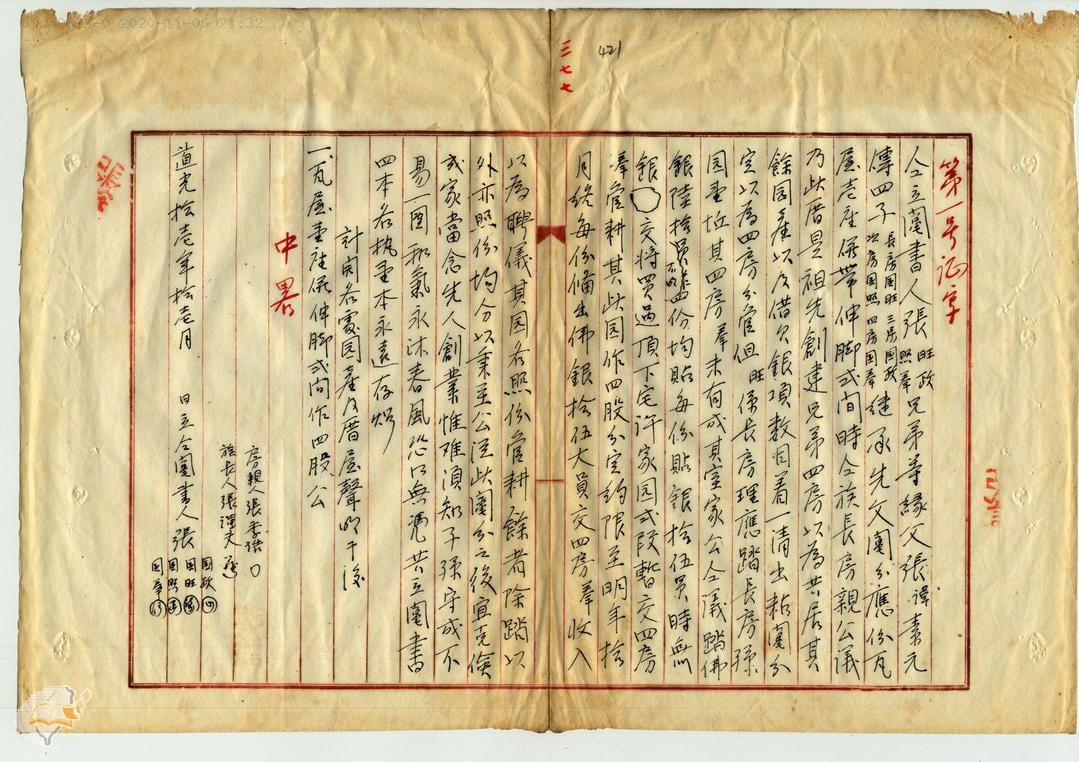 2020-11-06 21:32
421
三七七
第一号証字
仝立鬮書人張旺政照羣兄弟等緣父張諱素元
傳四子長房国旺三房国政次房国照四房国羣継承先父鬮分應份瓦
屋壱座併帶伸脚弍间時仝族長房親公議
乃此厝是祖先創建兄弟四房以為共居其
餘园產以及借欠銀項数目看一清出粘鬮分
定以為四房分管但旺係長房理應踏長房孫
园壹坵其四房羣未有成其室家公仝議踏佛
銀陸拾員作四份均貼每份貼銀拾伍員時無
銀交将買過頂下宅許家园弍段暫交四房
羣管耕其此园作四股分定約限至明年拾
月終每份俻出佛銀拾伍大員交四房羣收入
以為聘儀其园各照份管耕餘者除踏以
外亦照份均分以秉至公從此鬮分之後宜克儉
成家當念先人創業惟难須知子孫守成不
易一团和氣永沐春風恐口無憑共立鬮書
四本各执壹本永遠存炤
計開各處园產及厝屋聲明于後
一瓦屋壹座併伸脚弍间作四股公
中畧
房親人張
族長人張
道光拾壱年拾壱月 日立仝鬮書人張国政国旺国照国羣